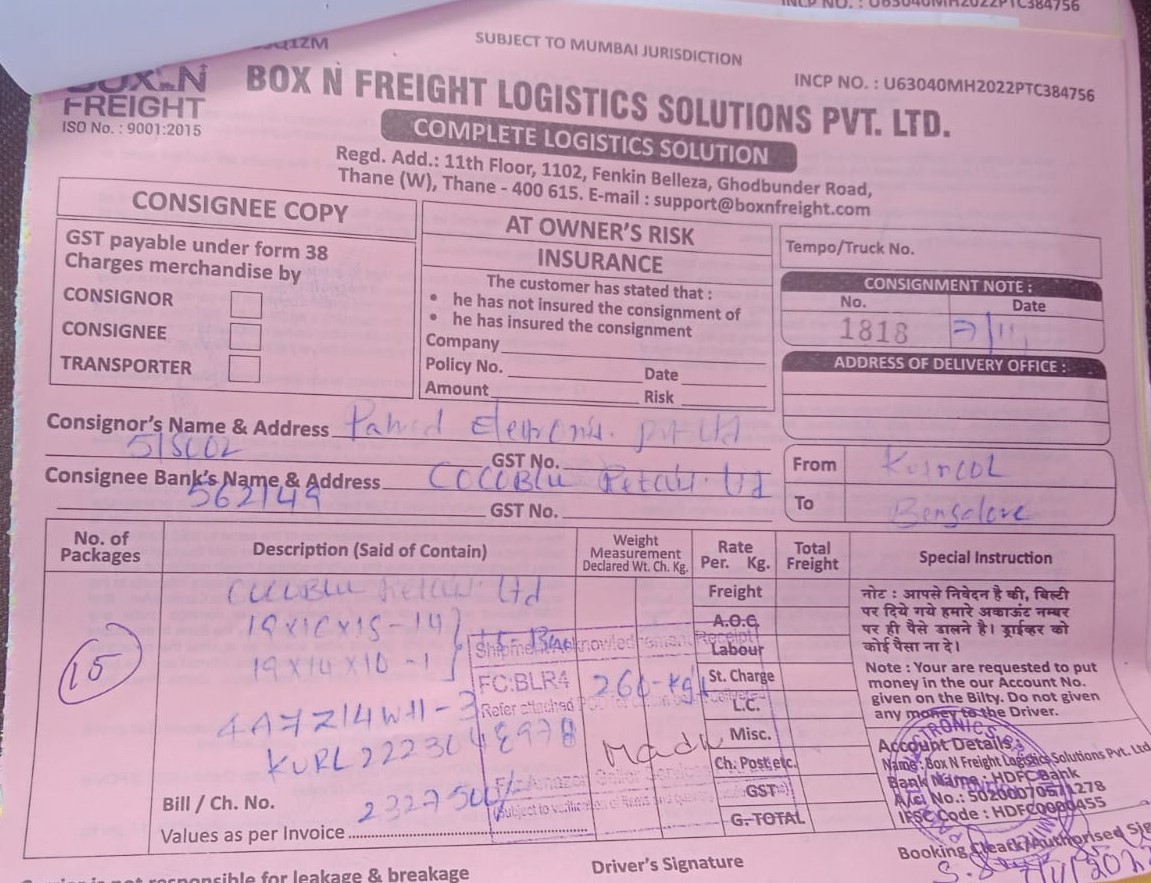 INCP NO. : U63040MH2022PTC384756
Q1ZM
SUBJECT TO MUMBAI JURISDICTION
INCP NO. : U63040MH2022PTC384756
BOX N FREIGHT
ISO No. : 9001:2015
BOX N FREIGHT LOGISTICS SOLUTIONS PVT. LTD.
COMPLETE LOGISTICS SOLUTION
Regd. Add.: 11th Floor, 1102, Fenkin Belleza, Ghodbunder Road,
Thane (W), Thane - 400 615. E-mail : support@boxnfreight.com
CONSIGNEE COPY
GST payable under form 38
Charges merchandise by
CONSIGNOR
CONSIGNEE
TRANSPORTER
AT OWNER'S RISK
INSURANCE
The customer has stated that :
• he has not insured the consignment of
• he has insured the consignment
Company
Policy No. Date
Amount Risk
Tempo/Truck No.
CONSIGNMENT NOTE :
No. Date
1818 7/11
ADDRESS OF DELIVERY OFFICE :
Consignor's Name & Address pvt Ltd
GST No.
Consignee Bank's Name & Address COCOBLU Retail Ltd
562149 GST No.
From
To Bengalore
No. of Packages
Description (Said of Contain)
Weight Measurement Declared Wt. Ch. Kg.
Rate Per. Kg.
Total Freight
Special Instruction
15
COCOBLU Retail Ltd
19X14X10-1
Shipment Acknowledgement Receipt
FC:BLR4
Refer attached
260-kg
Amazon Seller Services
Madh
Freight
A.O.C
Labour
St. Charge
L.C.
Misc.
Ch. Post etc.
GST
G. TOTAL
नोट : आपसे निवेदन है की, बिल्टी
पर दिये गये हमारे अकाऊंट नम्बर
पर ही पैसे डालने है। ड्राईव्हर को
कोई पैसा ना दे।
Note : Your are requested to put
money in the our Account No.
given on the Bilty. Do not given
any money to the Driver.
Account Details :
Name : Box N Freight Logistics Solutions Pvt. Ltd
Bank Name : HDFC Bank
A/c. No.: 50200070571278
IFSC Code : HDFC0000455
Bill / Ch. No.
Values as per Invoice
Booking Cleark/Authorised Sig
Driver's Signature
is not responsible for leakage & breakage